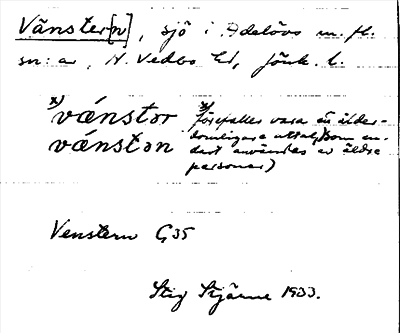 Vänster[n], sjö i Adelövs m. fl.
sn:ar, N. Vedbo hd, Jönk. l.
x) vǽnstər x) förefaller vara en ålder-
domligare uttal (som en-
vǽnstən dast användes av äldre
personer)
Venstern G35
Stig Stjärne 1933.